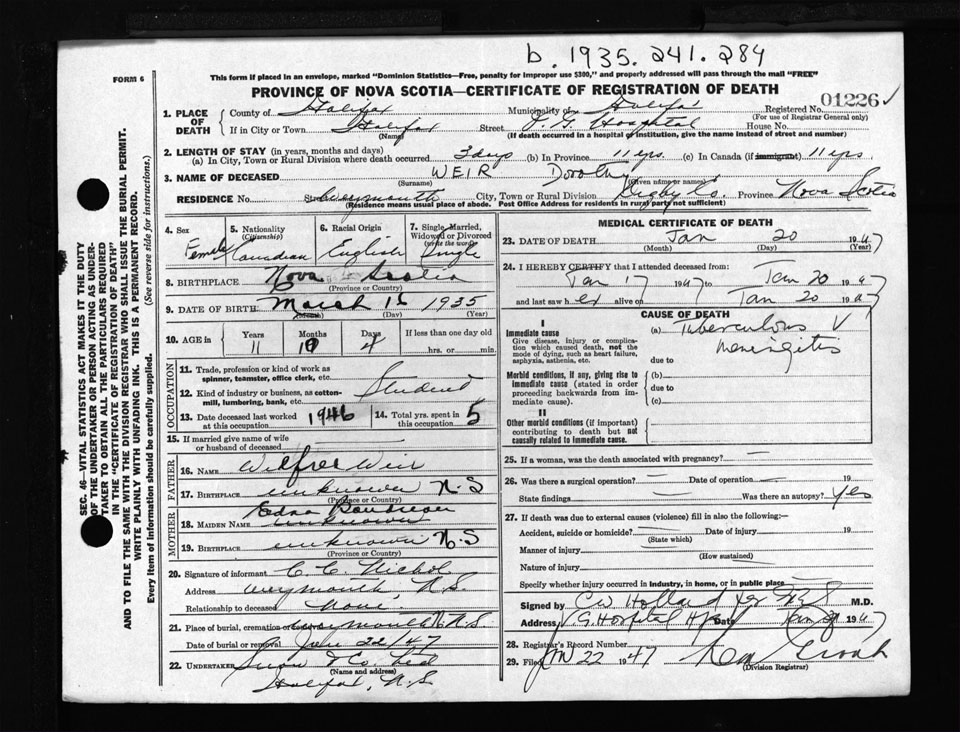 b. 1935. 241. 284
FORM 6
This form if placed in an envelope, marked "Dominion Statistics—Free, penalty for improper use $300," and properly addressed will pass through the mail "FREE"
PROVINCE OF NOVA SCOTIA—CERTIFICATE OF REGISTRATION OF DEATH
01226
1. PLACE OF DEATH County of Halifax Municipality of Halifax Registered No.
(For use of Registrar General only)
If in City or Town Halifax Street V. G. Hospital House No.
(Name) (If death occurred in a hospital or institution, give the name instead of street and number)
2. LENGTH OF STAY (in years, months and days)
(a) In City, Town or Rural Division where death occurred 3 days (b) In Province 11 yrs. (c) In Canada (if immigrant) 11 yrs
3. NAME OF DECEASED WEIR Dorothy
(Surname) (Given name or names)
RESIDENCE No. St. Weymouth City, Town or Rural Division Digby Co. Province Nova Scotia
(Residence means usual place of abode. Post Office Address for residents in rural parts not sufficient)
4. Sex 5. Nationality (Citizenship) 6. Racial Origin 7. Single, Married, Widowed or Divorced (write the word)
Female Canadian English Single
8. BIRTHPLACE Nova Scotia
(Province or Country)
9. DATE OF BIRTH March 16 1935
(Month) (Day) (Year)
10. AGE in Years Months Days If less than one day old
11 10 4 hrs. or min.
OCCUPATION
11. Trade, profession or kind of work as spinner, teamster, office clerk, etc.
Student
12. Kind of industry or business, as cotton-mill, lumbering, bank, etc.
13. Date deceased last worked at this occupation 1946 14. Total yrs. spent in this occupation 5
15. If married give name of wife or husband of deceased
FATHER
16. NAME Wilfred Weir
17. BIRTHPLACE unknown N.S
(Province or Country)
MOTHER
Edna
18. MAIDEN NAME unknown
19. BIRTHPLACE unknown N.S
(Province or Country)
20. Signature of informant C. C. Nichol
Address Weymouth, N.S.
Relationship to deceased None
21. Place of burial, cremation or removal Weymouth N.S
Date of burial or removal Jan 22/47
22. UNDERTAKER Snow & Co. Ltd
(Name and address)
Halifax, N.S
MEDICAL CERTIFICATE OF DEATH
23. DATE OF DEATH Jan 20 1947
(Month) (Day) (Year)
24. I HEREBY CERTIFY that I attended deceased from:
Jan 17 1947 to Jan 20 1947
and last saw her alive on Jan 20 1947
CAUSE OF DEATH
I
Immediate cause
Give disease, injury or complication which caused death, not the mode of dying, such as heart failure, asphyxia, asthenia, etc.
(a) Tuberculous Meningitis
due to
Morbid conditions, if any, giving rise to immediate cause (stated in order proceeding backwards from immediate cause).
(b)
due to
(c)
II
Other morbid conditions (if important) contributing to death but not causally related to immediate cause.
25. If a woman, was the death associated with pregnancy? —
26. Was there a surgical operation? — Date of operation — 19
State findings — Was there an autopsy? Yes
27. If death was due to external causes (violence) fill in also the following:—
Accident, suicide or homicide? Date of injury 19
(State which)
Manner of injury
(How sustained)
Nature of injury
Specify whether injury occurred in industry, in home, or in public place
Signed by C W Holland M.D.
Address V. G. Hospital Hfx 1947
28. Registrar's Record Number
29. Filed JAN 22 1947
(Division Registrar)
SEC. 46—VITAL STATISTICS ACT MAKES IT THE DUTY OF THE UNDERTAKER OR PERSON ACTING AS UNDERTAKER TO OBTAIN ALL THE PARTICULARS REQUIRED IN THE "CERTIFICATE OF REGISTRATION OF DEATH" AND TO FILE THE SAME WITH THE DIVISION REGISTRAR WHO SHALL ISSUE THE BURIAL PERMIT.
WRITE PLAINLY WITH UNFADING INK. THIS IS A PERMANENT RECORD.
Every item of Information should be carefully supplied. (See reverse side for instructions.)